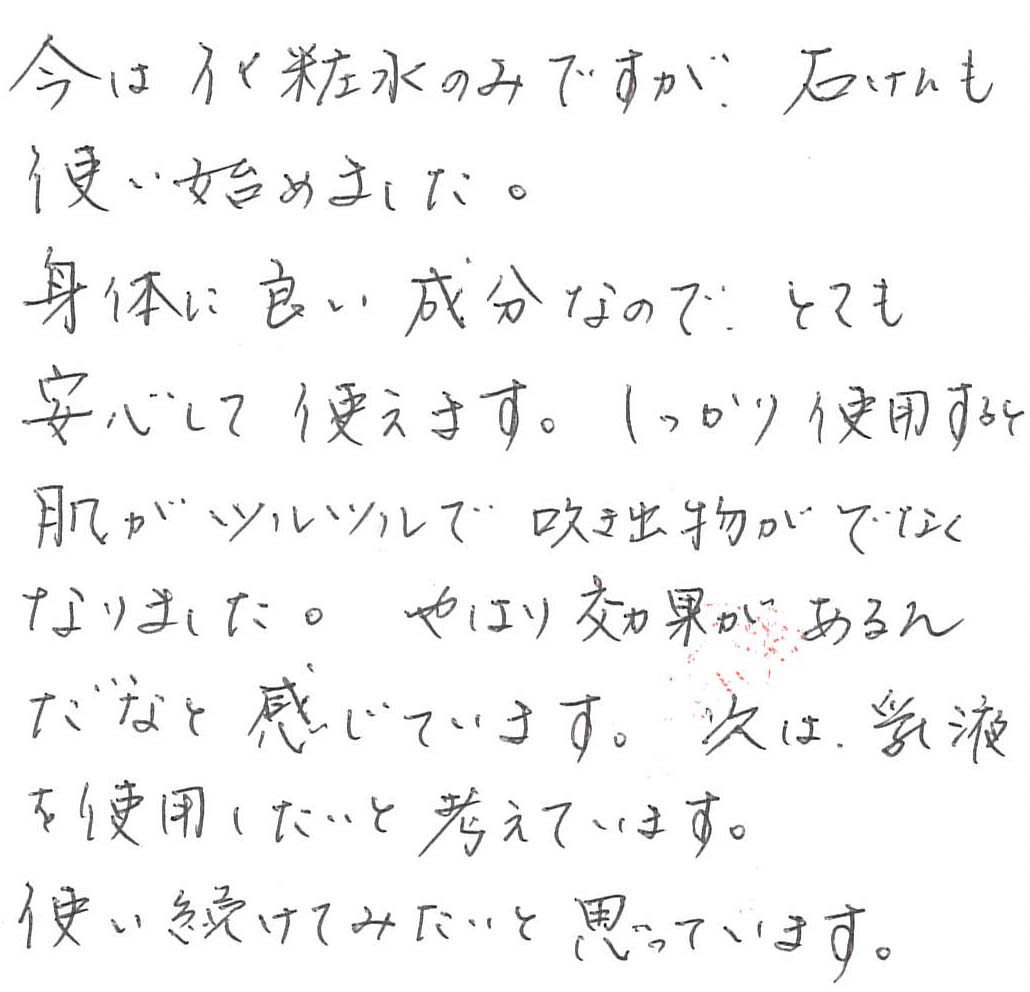 今は化粧水のみですが、石けんも
使い始めました。
身体に良い成分なので、とても
安心して使えます。しっかり使用すると
肌がツルツルで吹き出物がでなく
なりました。やはり効果があるん
だなと感じています。次は、乳液
を使用したいと考えています。
使い続けてみたいと思っています。